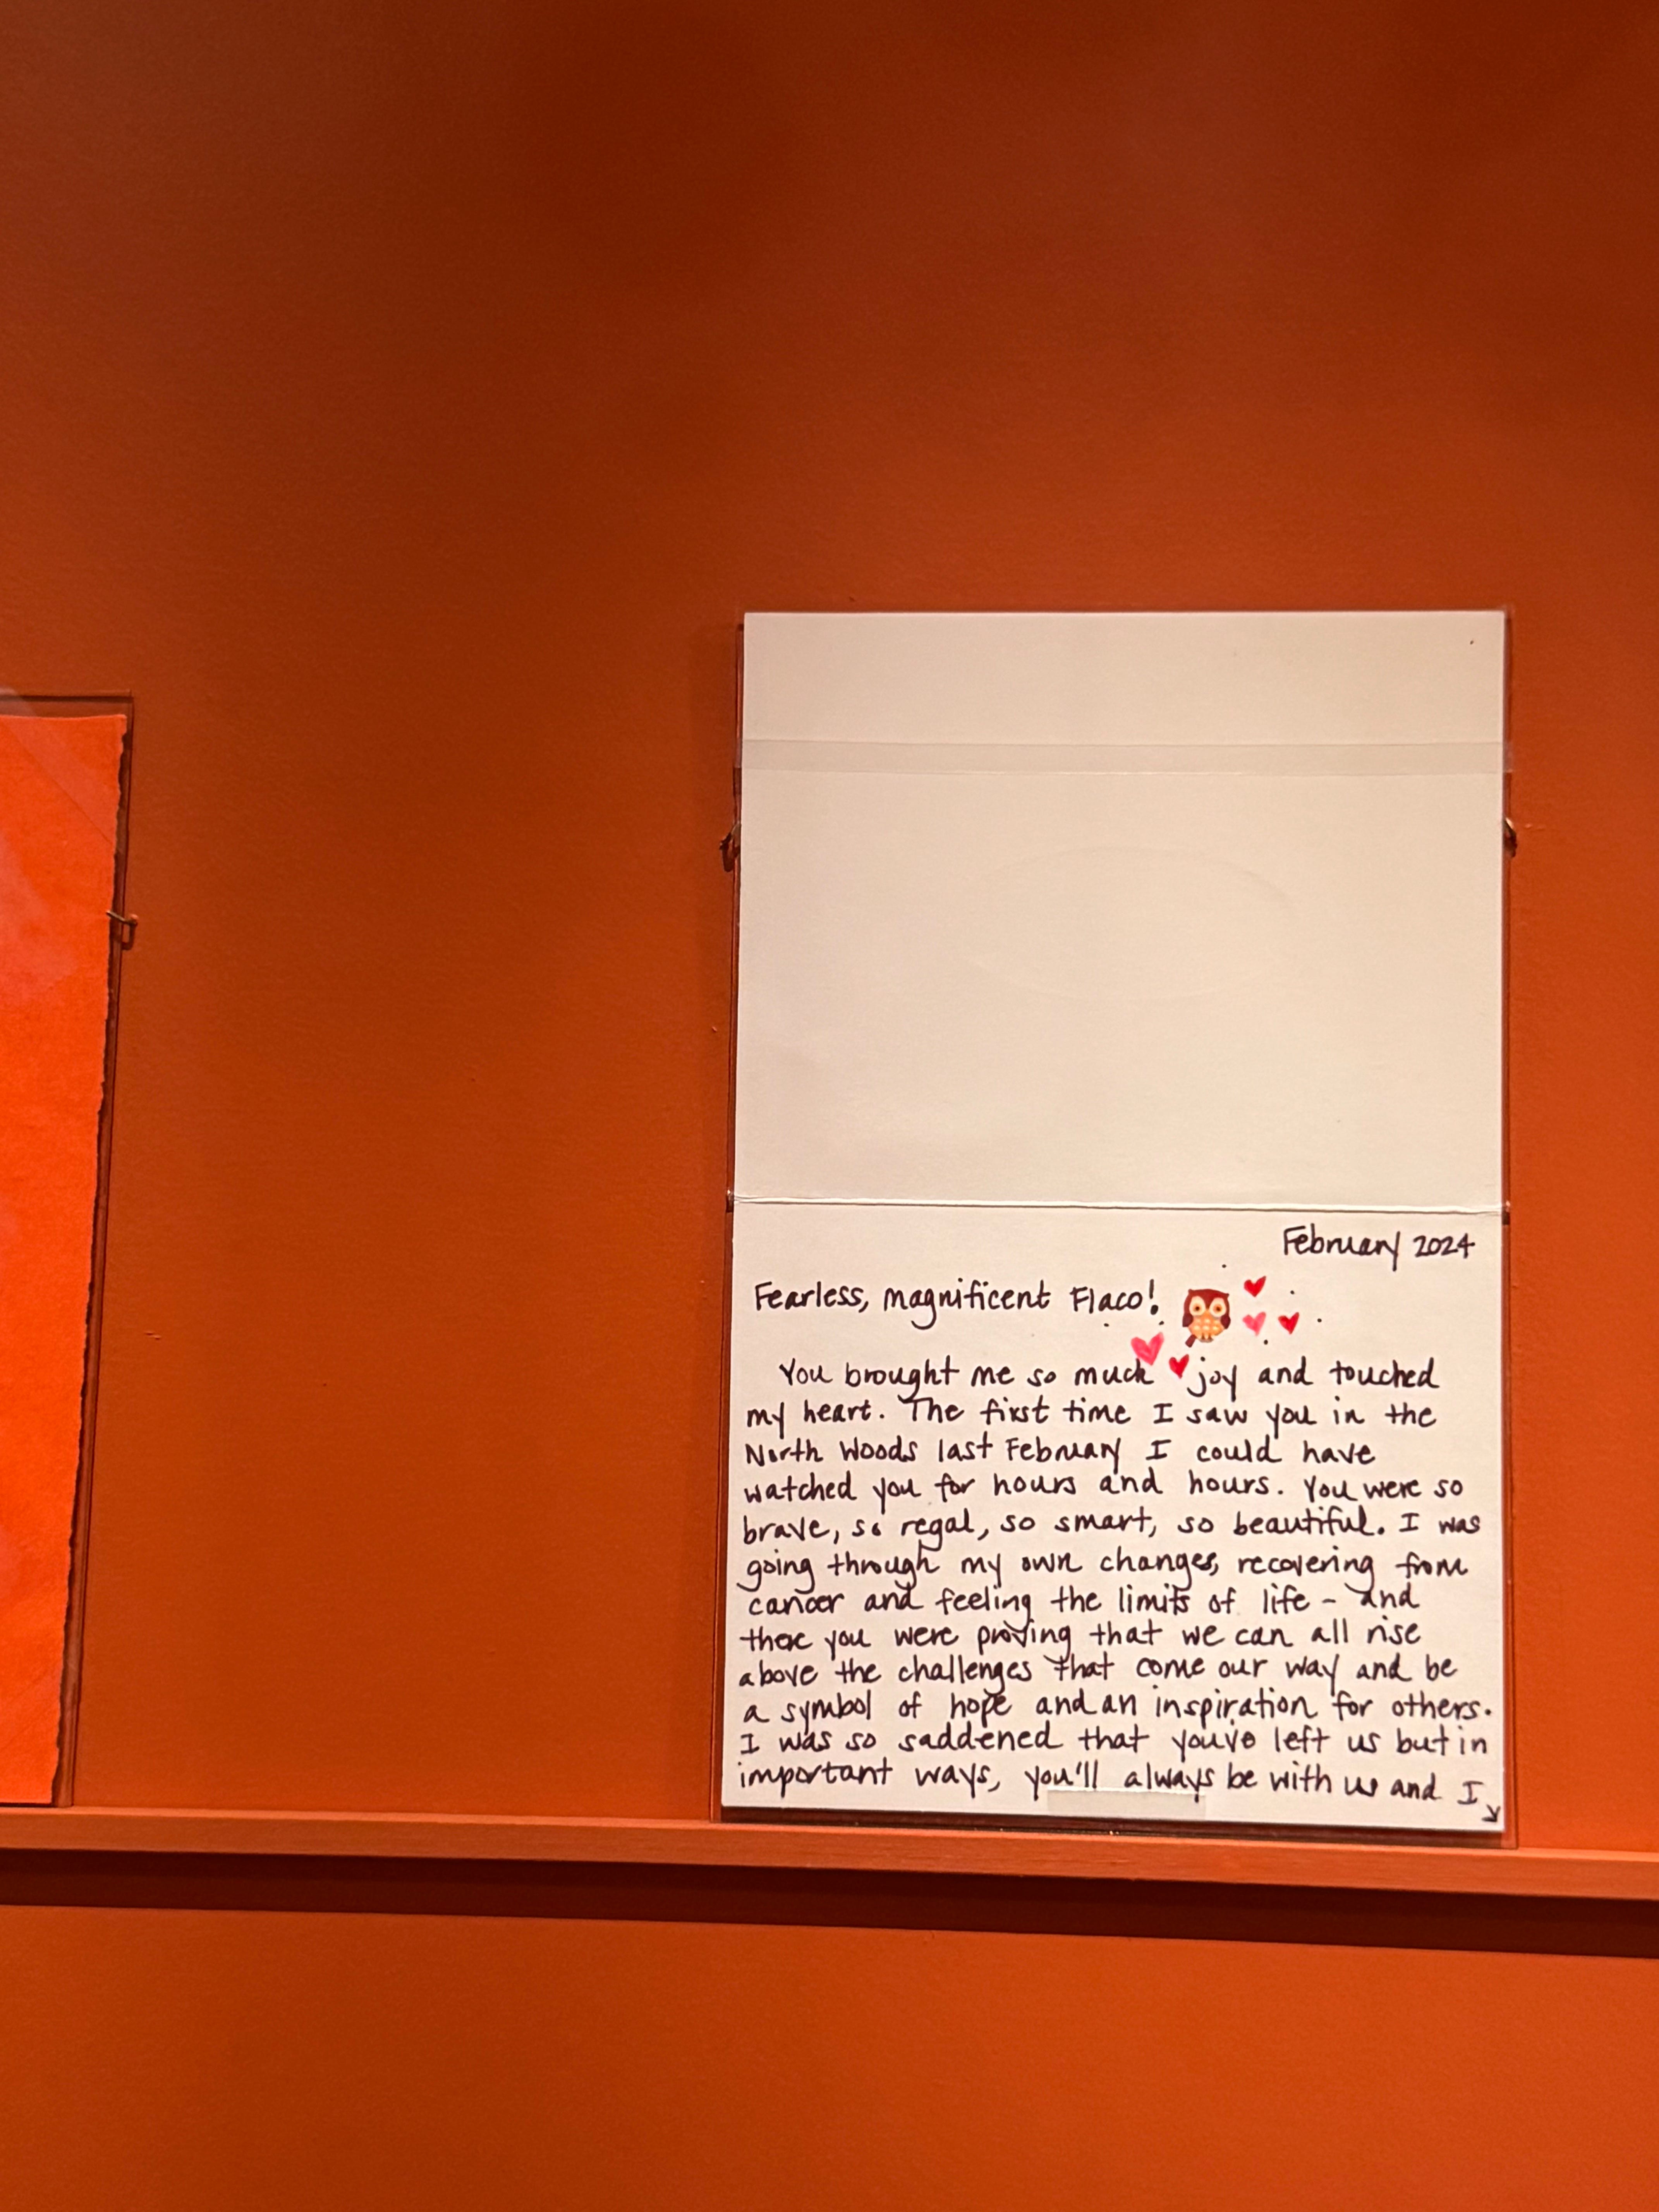 February 2024
Fearless, magnificent Flaco!
You brought me so much joy and touched
my heart. The first time I saw you in the
North Woods last February I could have
watched you for hours and hours. You were so
brave, so regal, so smart, so beautiful. I was
going through my own changes, recovering from
cancer and feeling the limits of life - and
there you were proving that we can all rise
above the challenges that come our way and be
a symbol of hope and an inspiration for others.
I was so saddened that you've left us but in
important ways, you'll always be with us and I